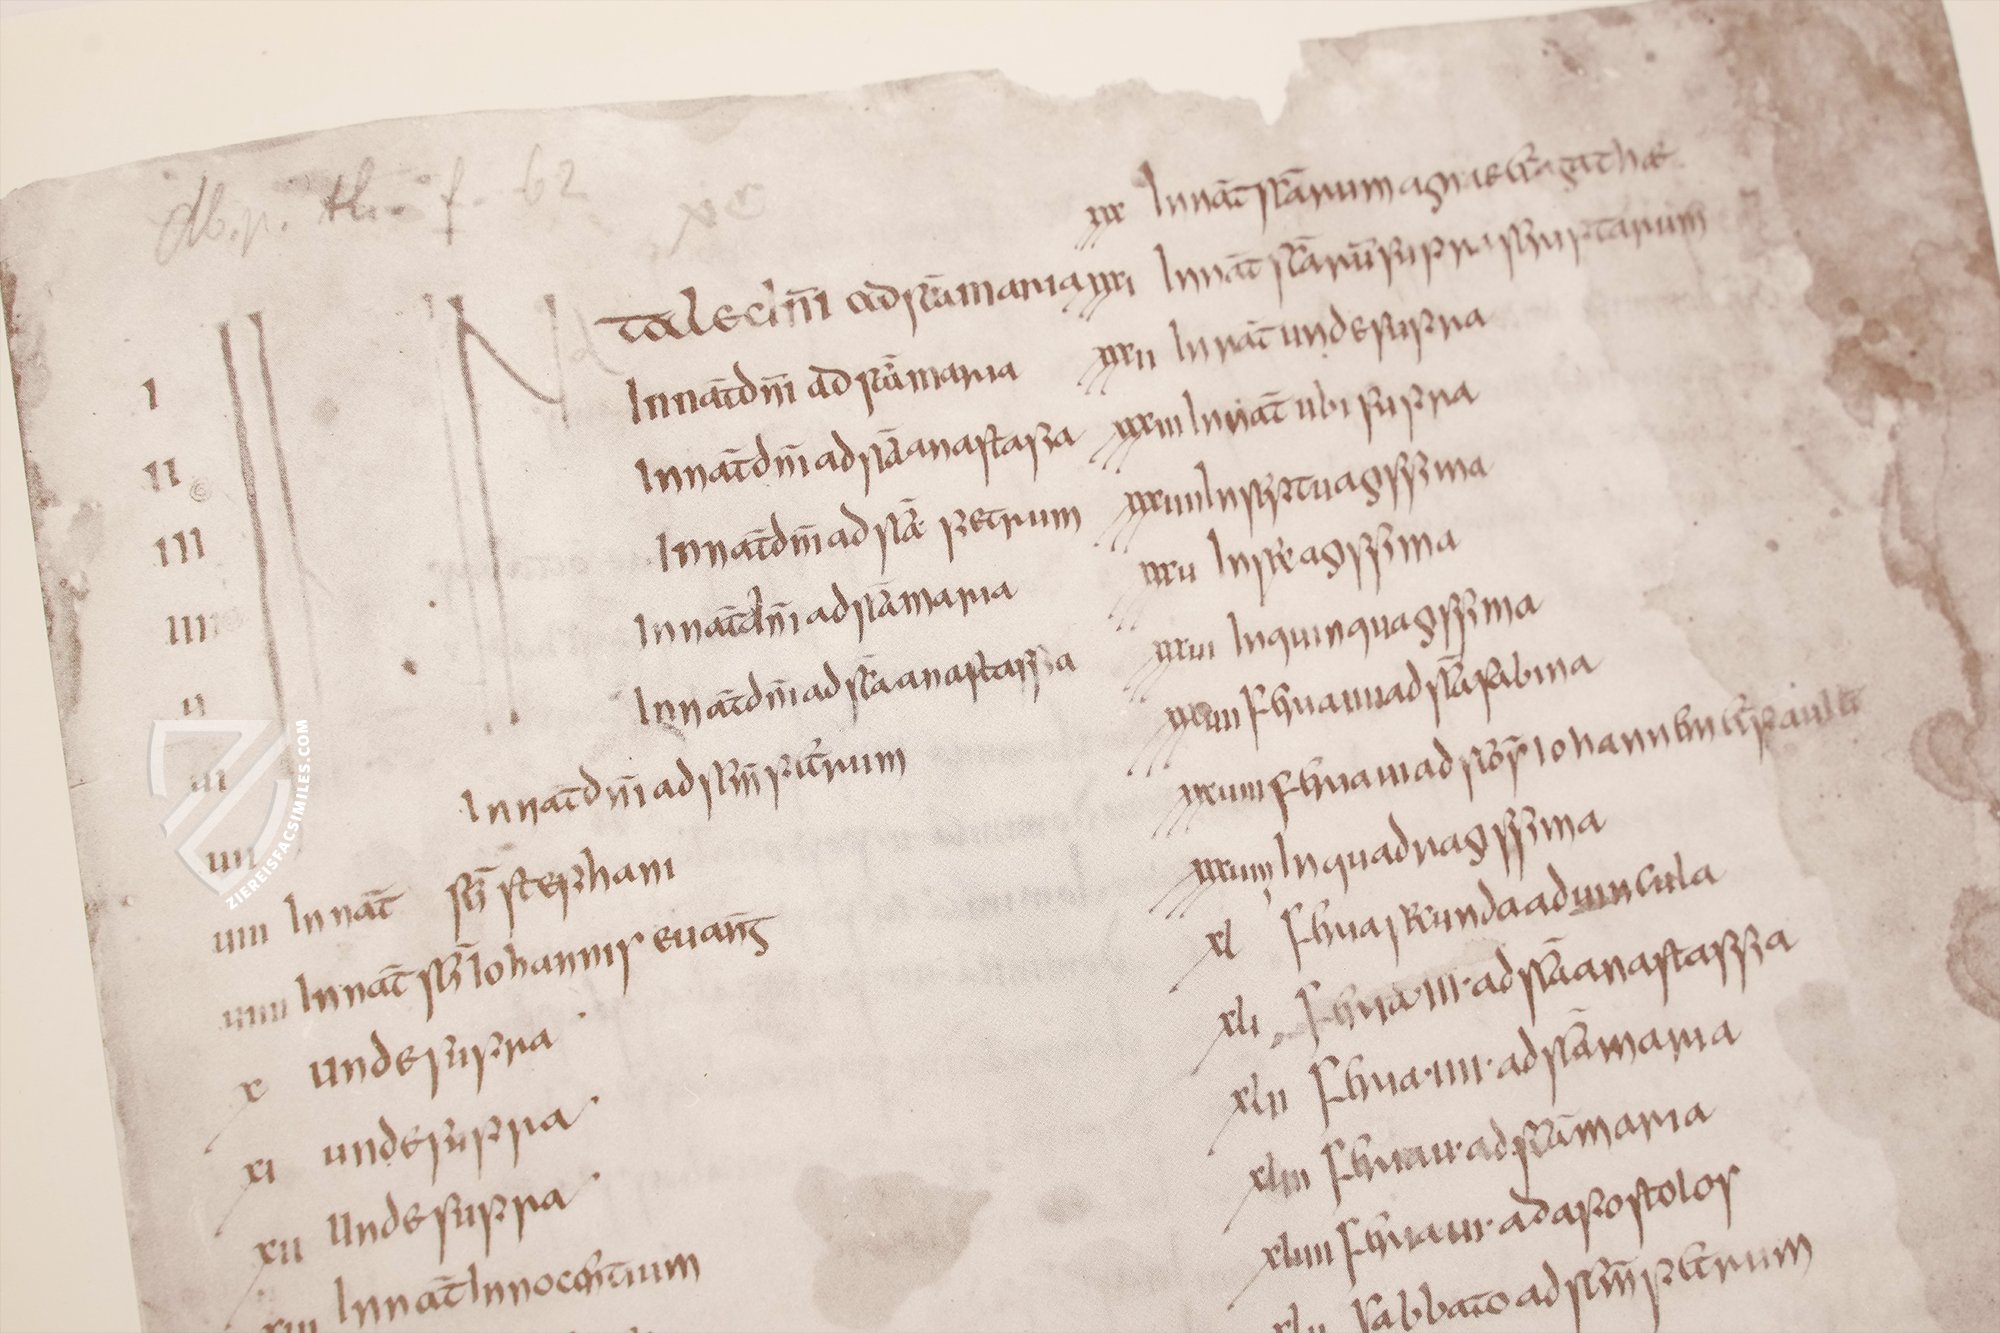 Mp. th. f. 62
I IN Natale dñi ad scām maria
II In nat̄ dñi ad scām maria
III In nat̄ dñi ad scā anastasia
IIII In nat̄ dñi ad scm̄ petrum
u In nat̄ dñi ad scām maria
ui In nat̄ dñi ad scā anastassia
uii In nat̄ dñi ad scm̄ petrum
uiii In nat̄ sci stephani
uiiii In nat̄ sci Iohannis euang̅
x unde supra
xi unde supra
xii unde supra
xiii In nat̄ Innocentium
xxx In nat̄ scārum agnae et agathae
xxxi In nat̄ scārū supra scriptarum
xxxii In nat̄ unde supra
xxxiii In nat̄ ubi supra
xxxiiii In septuagissima
xxxu In sexagissima
xxxui In quinquagissima
xxxuii Feria iiii ad scā sabina
xxxuiii Feria u ad scos Iohannem et pauli
xxxuiiii In quadragissima
xl Feria secunda ad uincula
xli Feria · iii · ad scā anastassia
xlii Feria · iiii · ad scām maria
xliii Feria u · ad scām maria
xliiii Feria ui · ad apostolos
xlu Sabbato ad scm̄ petrum
ZIEREISFACSIMILES.COM